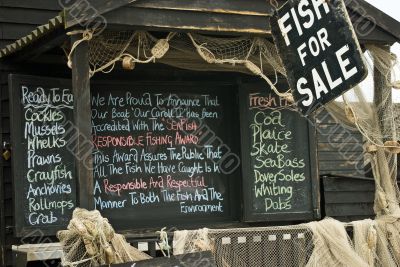 FISH
FOR
SALE
Ready To Eat
Cockles
Mussels
Whelks
Prawns
Crayfish
Anchovies
Rollmops
Crab
We Are Proud To Announce That
Our Boat 'Our Carol II' Has Been
Accredited With The SeaFish
RESPONSIBLE FISHING AWARD
This Award Assures The Public That
All The Fish We Have Caught Is In
A Responsible And Respectful
Manner To Both The Fish And The
Environment
Fresh
Cod
Plaice
Skate
Sea Bass
Dover Soles
Whiting
Dabs